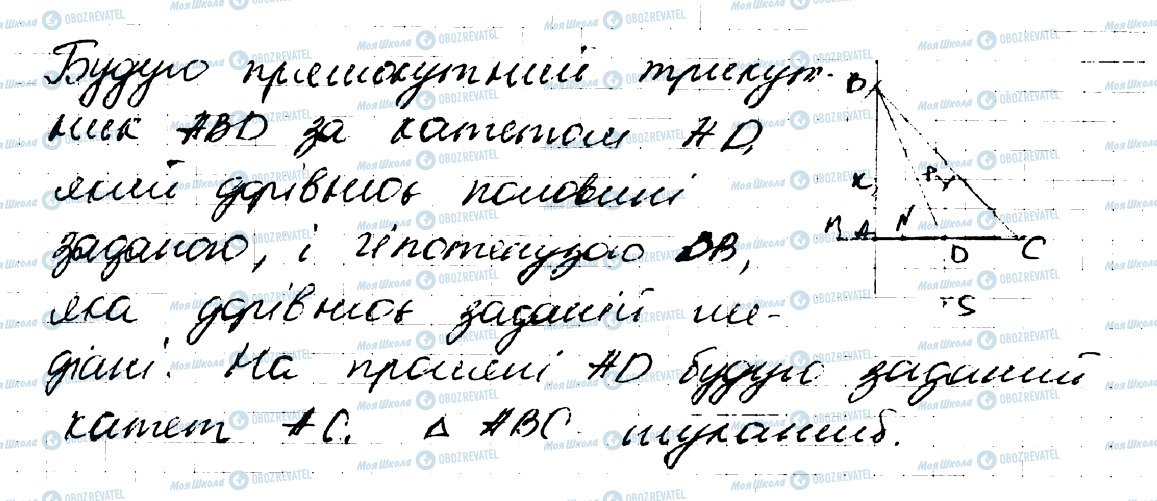 Будую прямокутний трикут-
ник ABD за катетом AD,
який дорівнює половині
заданого, і гіпотенузою DB,
яка дорівнює заданій ме-
діані. На промені AD будую заданий
катет AC. △ ABC шуканий.
B
K
P
M A N D C
S
Моя Школа OBOZREVATEL